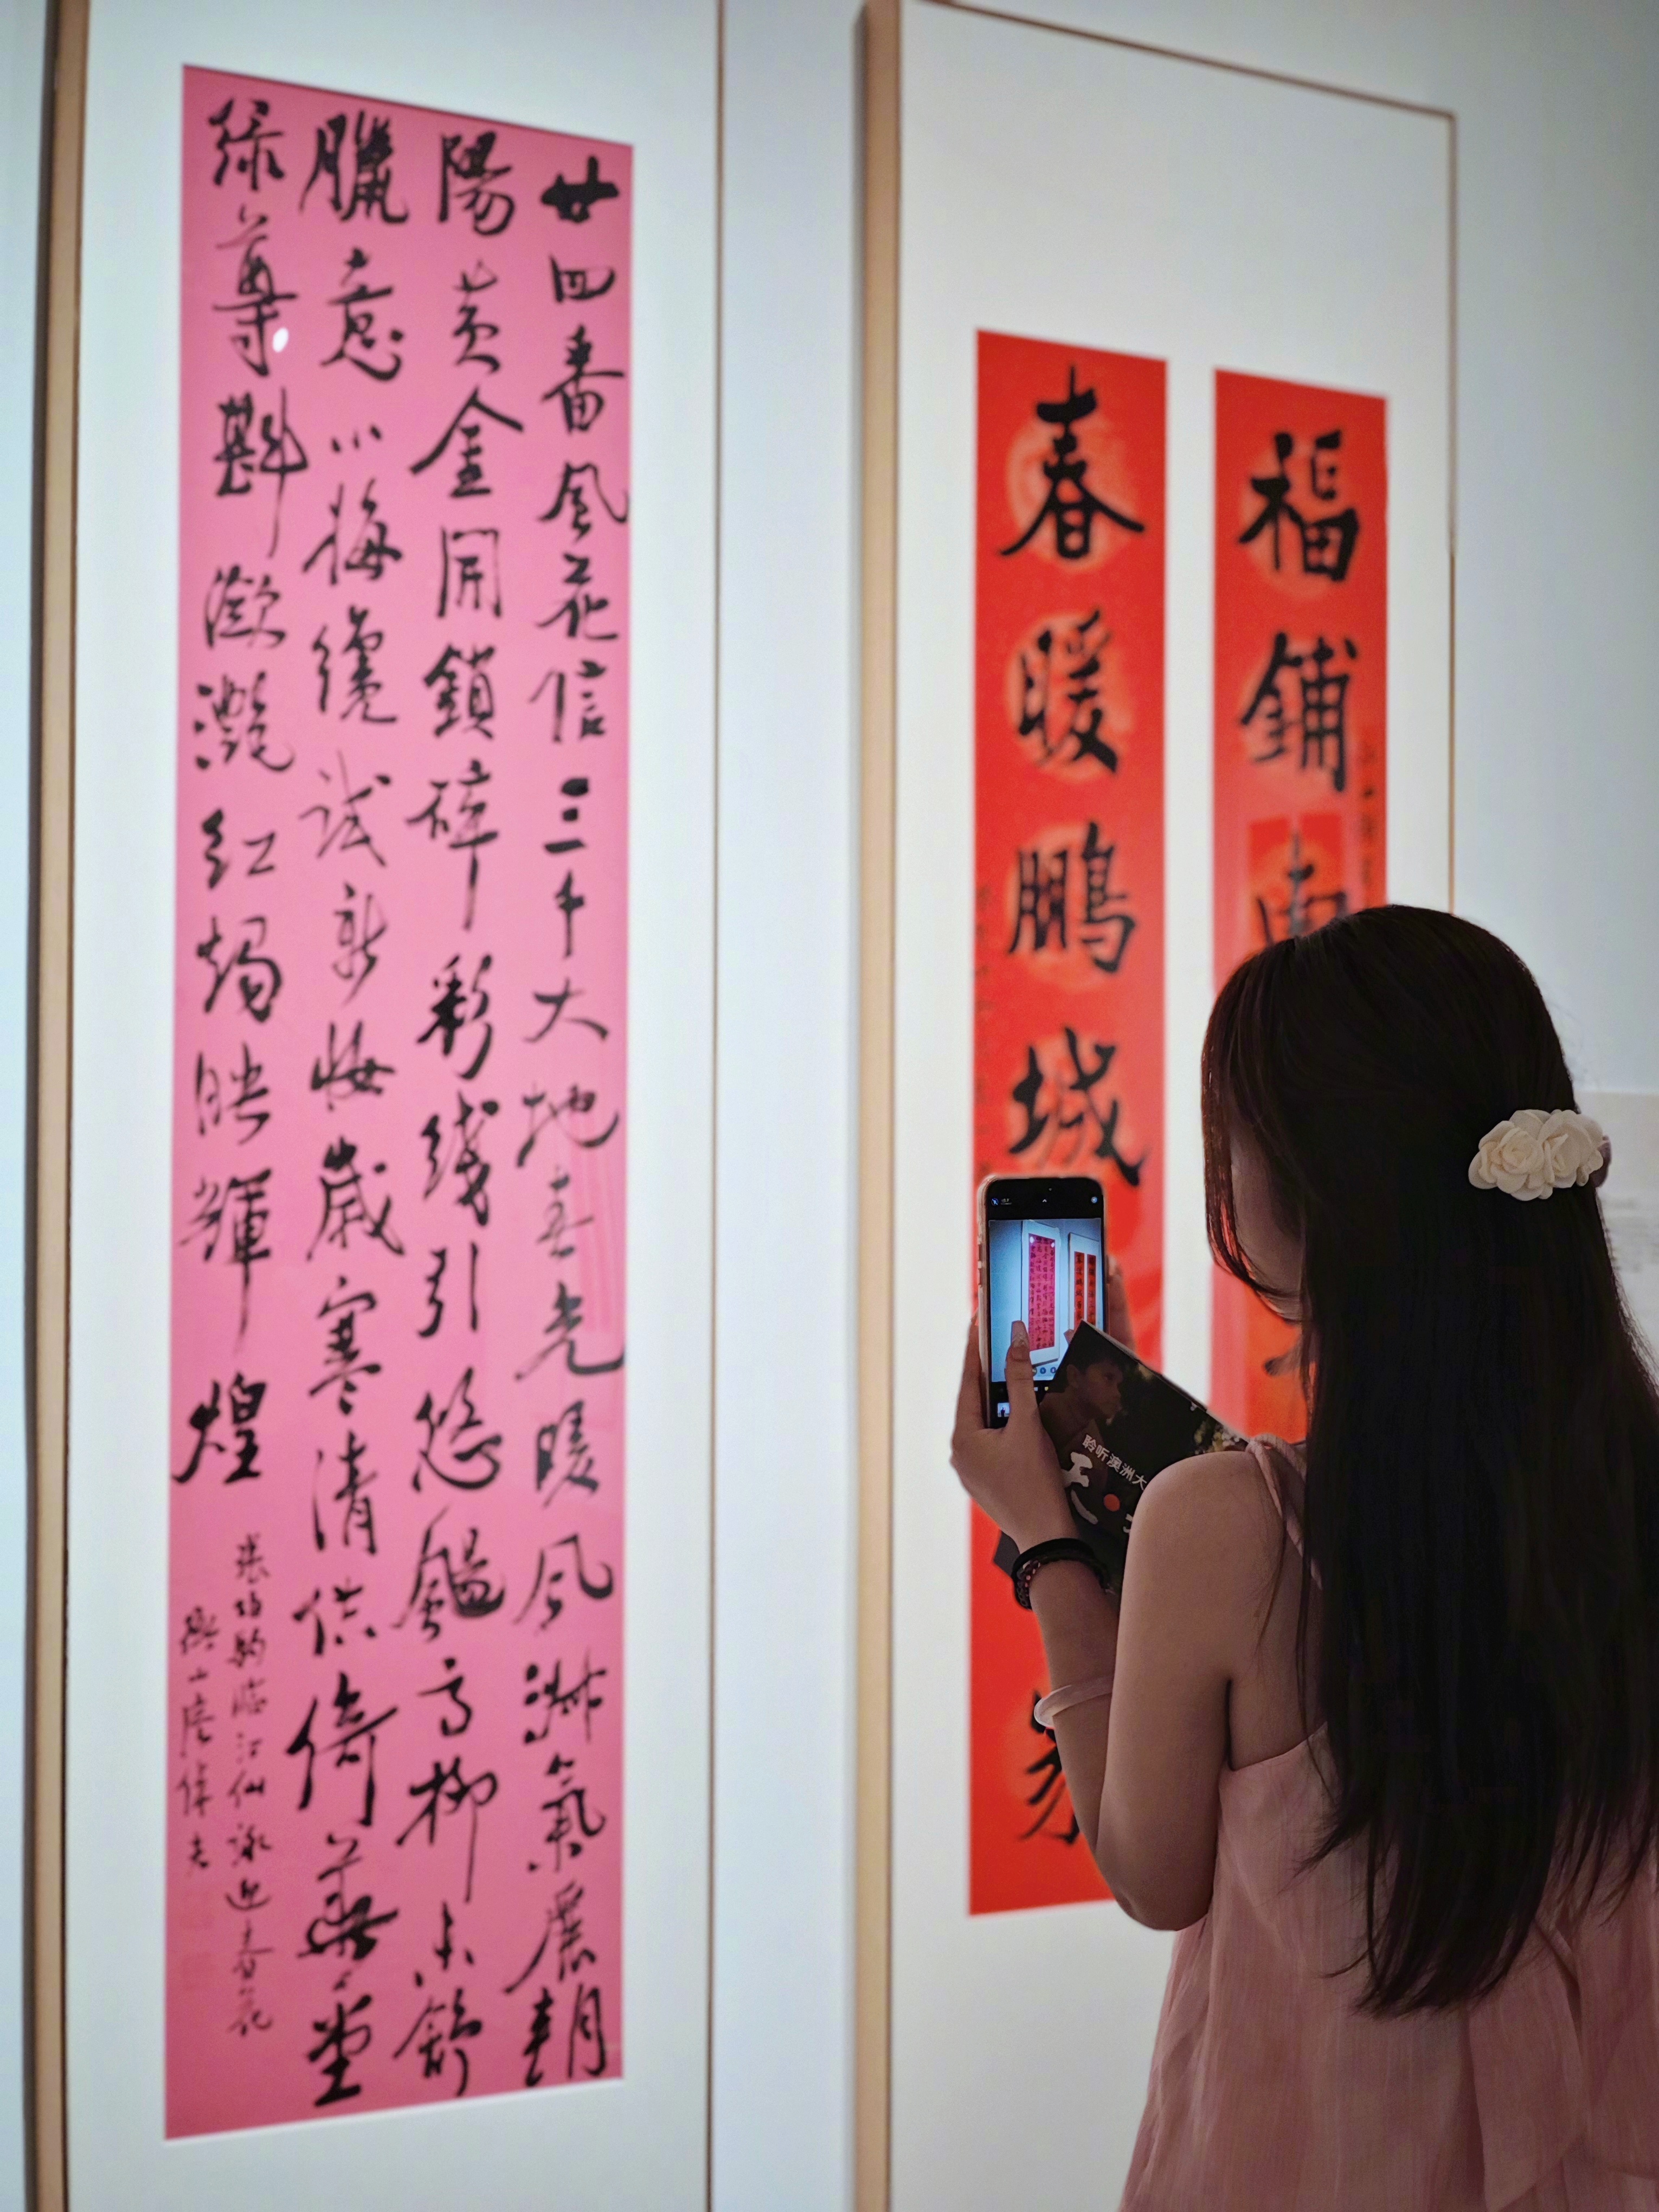 福鋪
春暖鵬城
廿四番風花信三千大地春光暖風淑氣麗朝
陽黃金開鎖碎彩綫引悠颺高柳未舒
臘意小梅纔試新妝歲寒清供倚華堂
綠尊斟瀲灧紅燭映輝煌
張伯駒臨江仙詠迎春花
聆听澳洲大